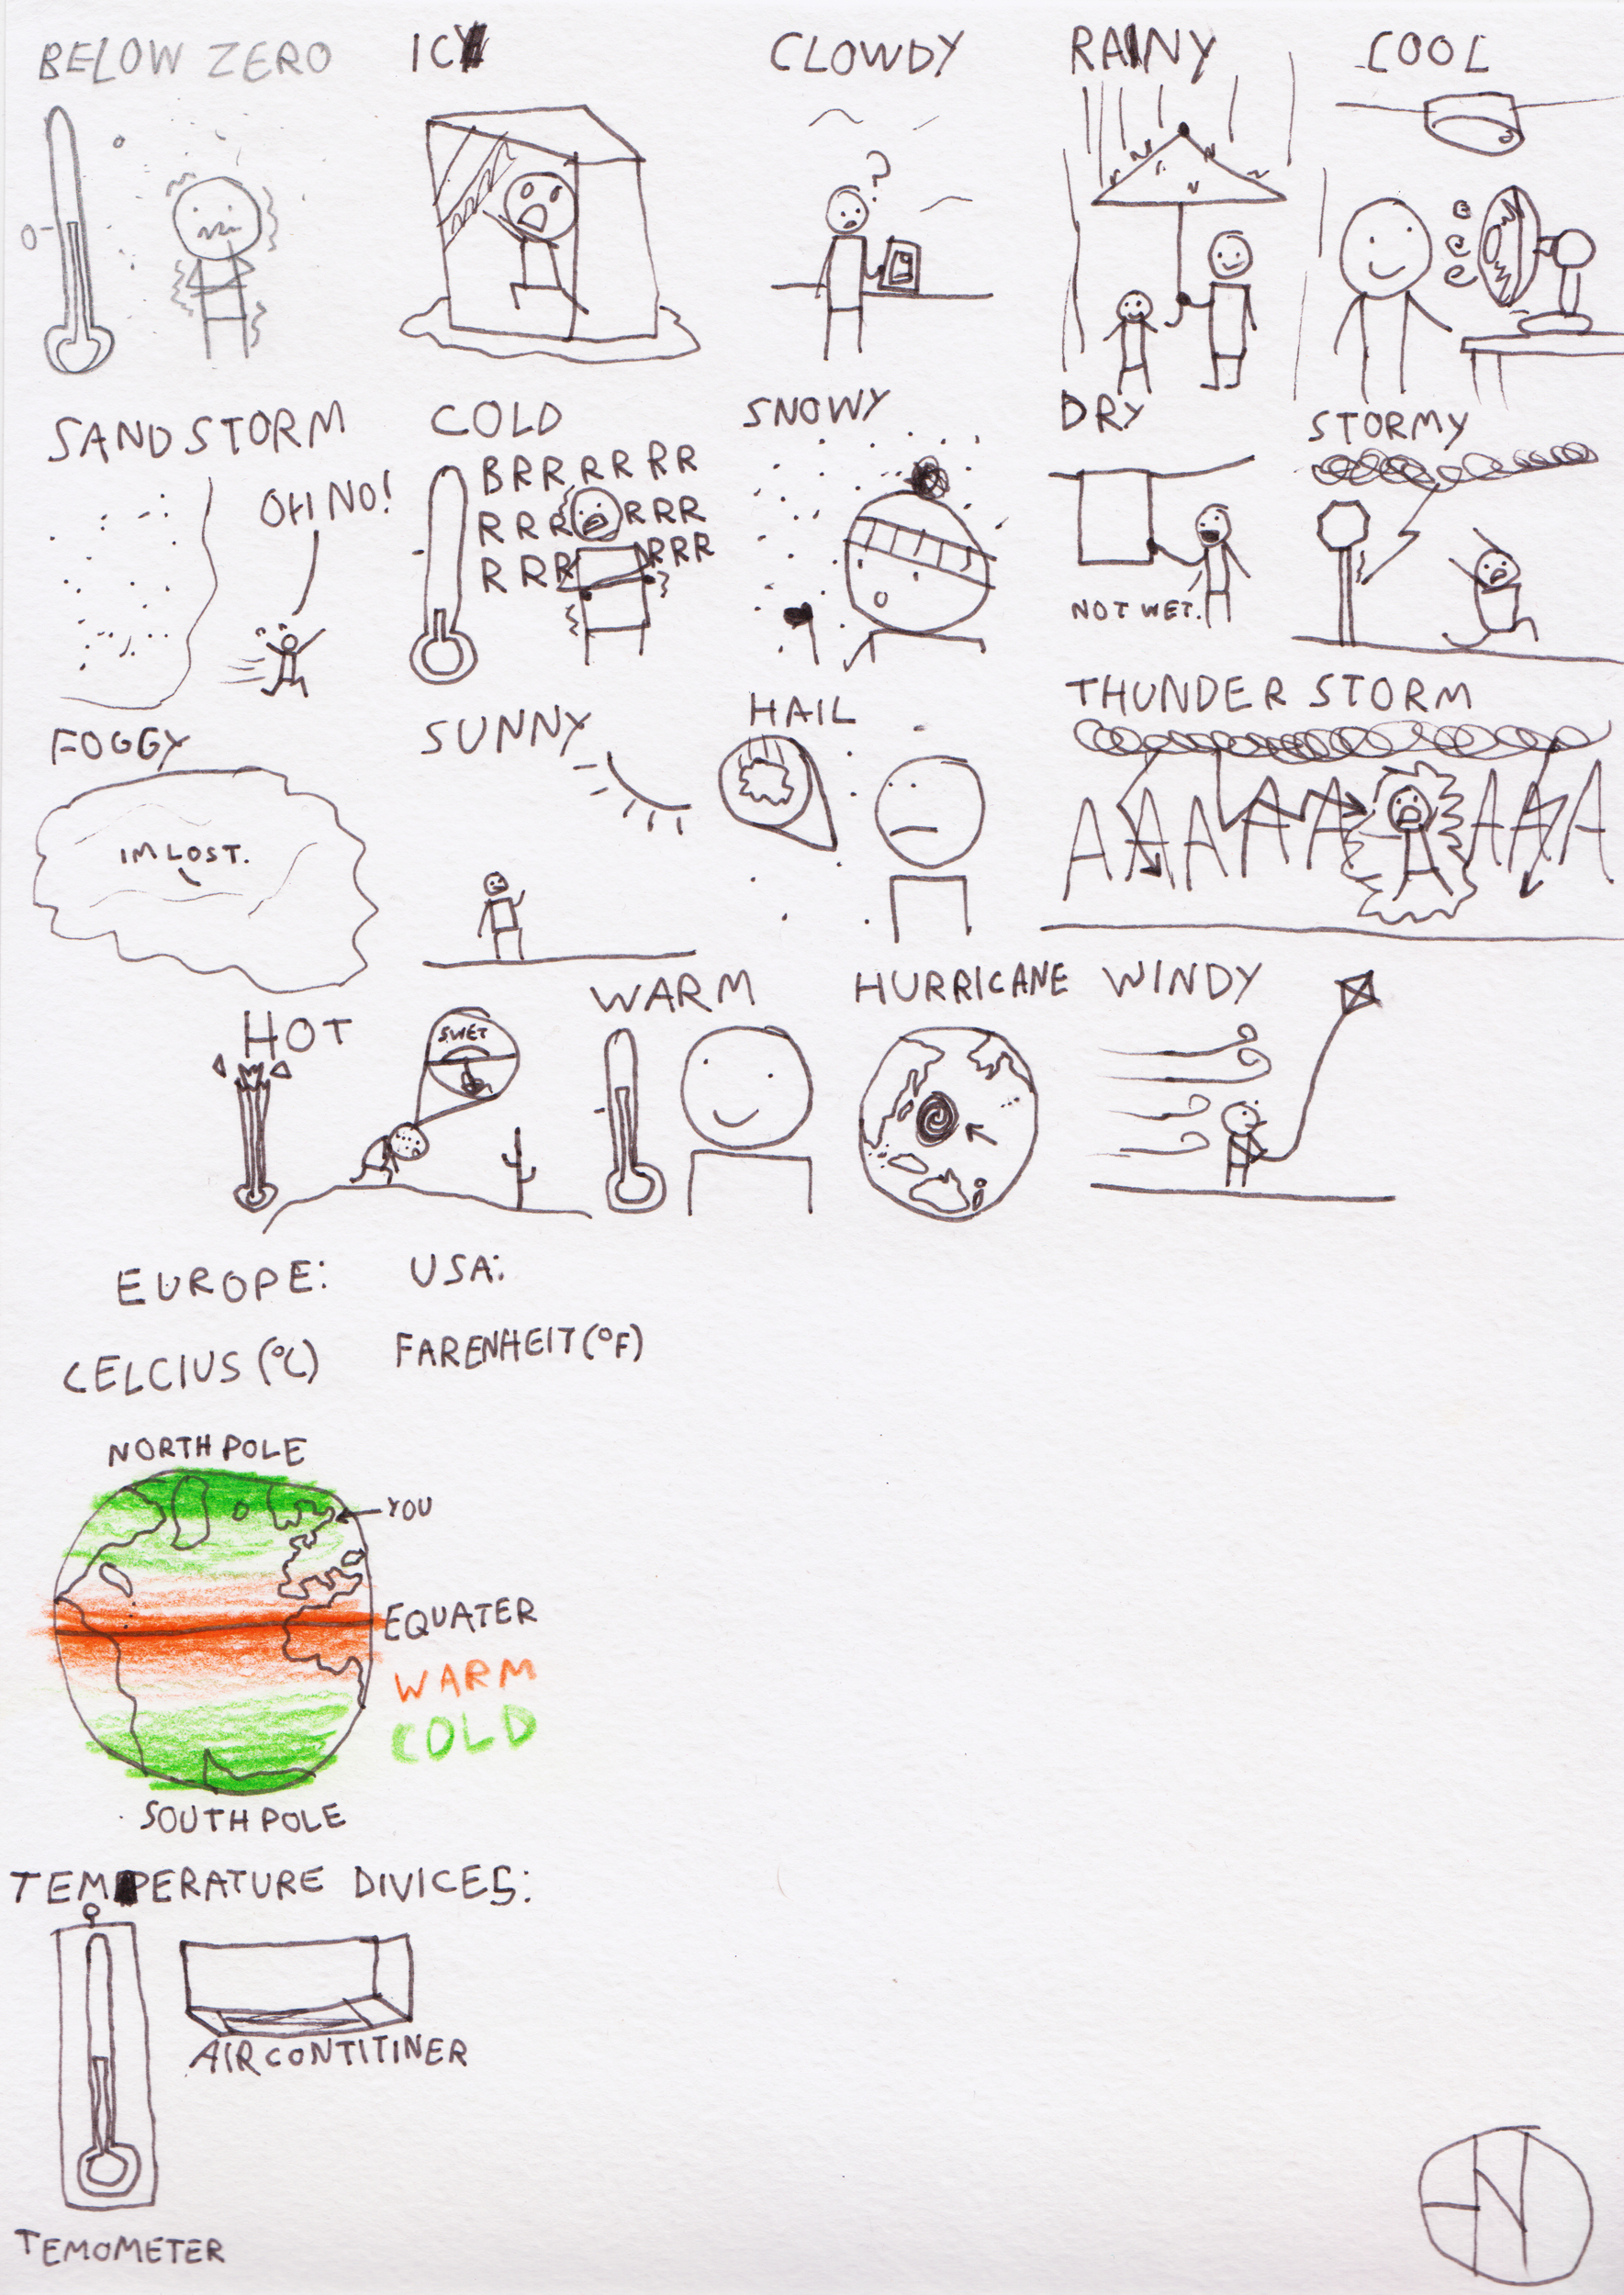 BELOW ZERO
ICY
CLOWDY
RAINY
COOL
0-
?
SANDSTORM
OH NO!
COLD
BRRRRRR
RRR RRR
RRR RRR
SNOWY
DRY
NOT WET.
STORMY
FOGGY
IM LOST.
SUNNY
HAIL
THUNDER STORM
AAAAA AAA
HOT
SWET
WARM
HURRICANE
WINDY
EUROPE:
USA:
CELCIUS (°C)
FARENHEIT (°F)
NORTH POLE
YOU
EQUATER
WARM
COLD
SOUTH POLE
TEMPERATURE DIVICES:
AIRCONTITINER
TEMOMETER